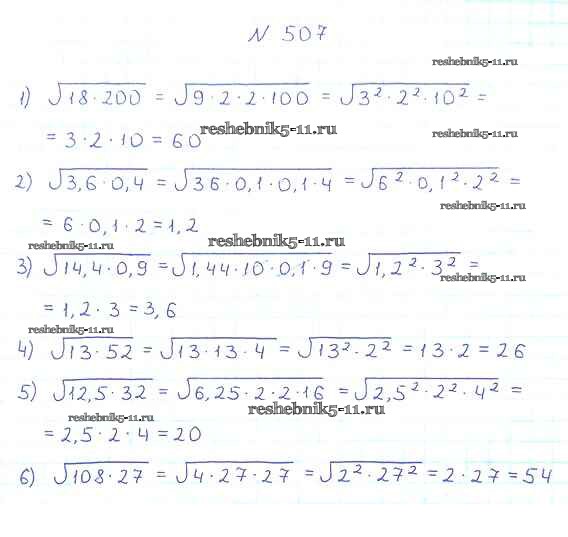 N 507
reshebnik5-11.ru
1) √18·200 = √9·2·2·100 = √3²·2²·10² =
= 3·2·10 = 60
reshebnik5-11.ru
reshebnik5-11.ru
2) √3,6·0,4 = √36·0,1·0,1·4 = √6²·0,1²·2² =
reshebnik5-11.ru
= 6·0,1·2 = 1,2
reshebnik5-11.ru
reshebnik5-11.ru
3) √14,4·0,9 = √1,44·10·0,1·9 = √1,2²·3² =
reshebnik5-11.ru
= 1,2·3 = 3,6
reshebnik5-11.ru
4) √13·52 = √13·13·4 = √13²·2² = 13·2 = 26
5) √12,5·32 = √6,25·2·2·16 = √2,5²·2²·4² =
reshebnik5-11.ru
reshebnik5-11.ru
= 2,5·2·4 = 20
6) √108·27 = √4·27·27 = √2²·27² = 2·27 = 54